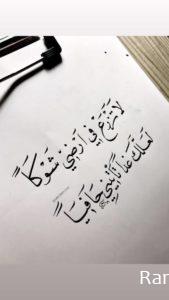 لا تزرع في أرضي شوكاً
لعلك غداً تأتيني حافياً
Rar